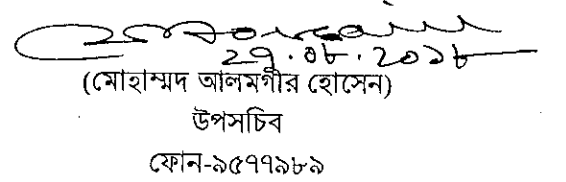 ২৭.০৮.২০১৮
(মোহাম্মদ আলমগীর হোসেন)
উপসচিব
ফোন-৯৫৭৭৯৮৯